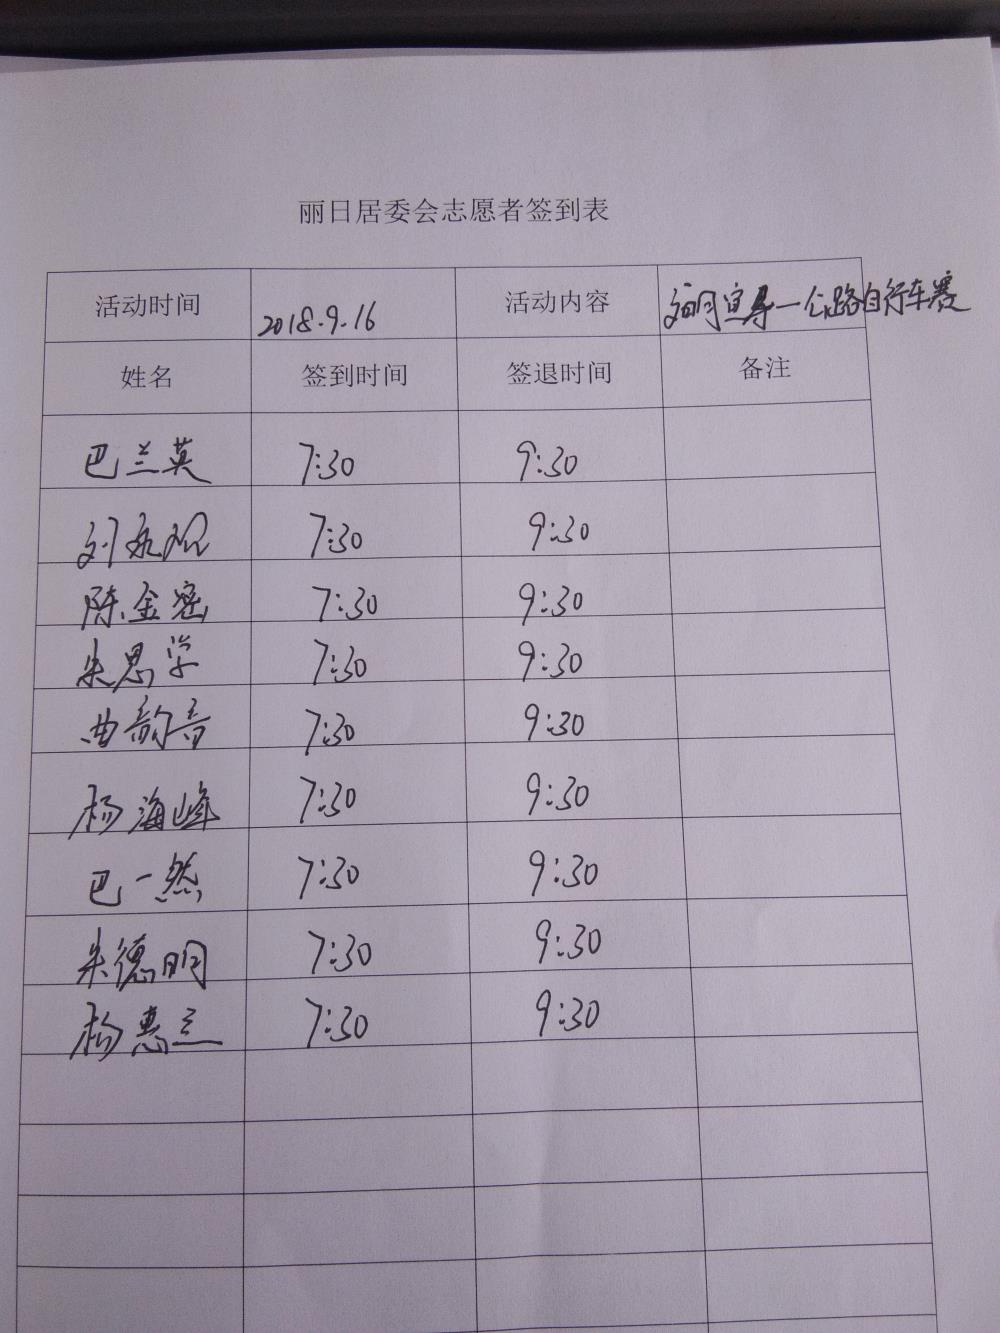 丽日居委会志愿者签到表
活动时间 2018.9.16 活动内容 文明宣导一公路自行车赛
姓名 签到时间 签退时间 备注
巴兰英 7:30 9:30
刘永观 7:30 9:30
陈金密 7:30 9:30
朱思学 7:30 9:30
曲韵音 7:30 9:30
杨海峰 7:30 9:30
巴一然 7:30 9:30
朱德明 7:30 9:30
杨惠兰 7:30 9:30